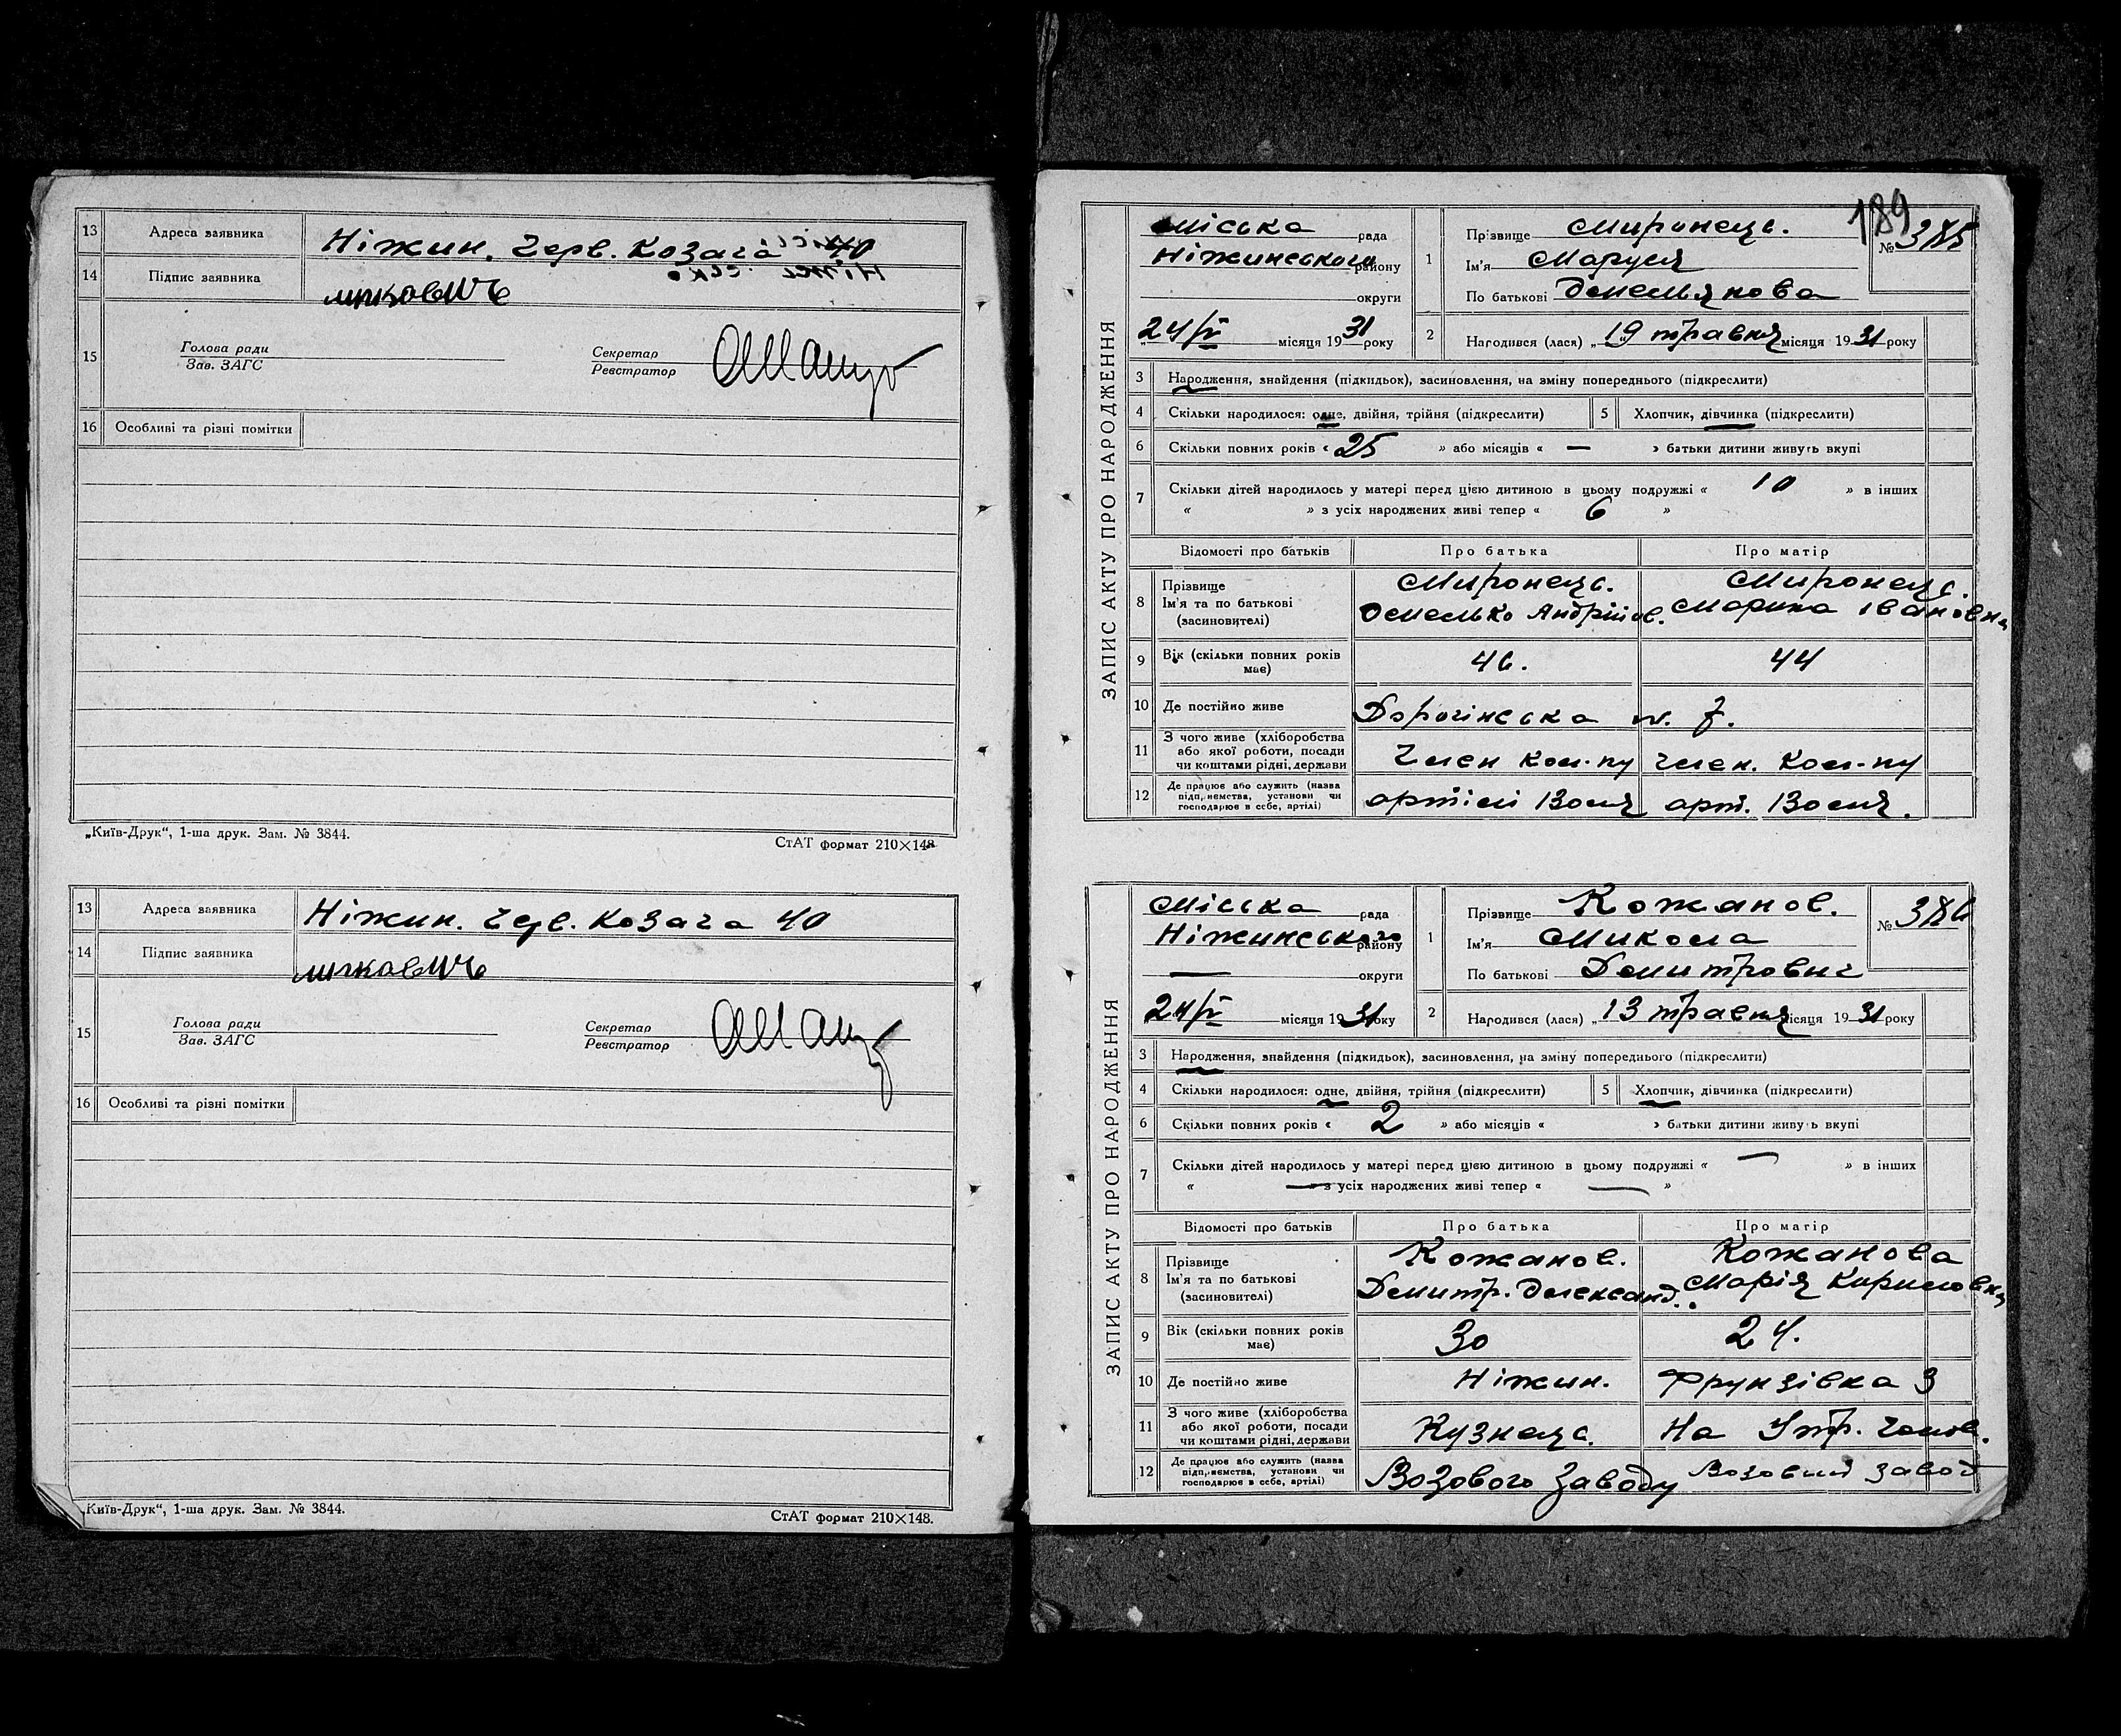 13 Адреса заявника Ніжин. Черв. Козача 40
14 Підпис заявника
15 Голова ради
Зав. ЗАГС
Секретар
Реєстратор
16 Особливі та різні помітки
„Київ-Друк“, 1-ша друк. Зам. № 3844.
СтАТ формат 210×148
13 Адреса заявника Ніжин. Черв. Козача 40
14 Підпис заявника
15 Голова ради
Зав. ЗАГС
Секретар
Реєстратор
16 Особливі та різні помітки
„Київ-Друк“, 1-ша друк. Зам. № 3844.
СтАТ формат 210×148.
189
ЗАПИС АКТУ ПРО НАРОДЖЕННЯ
Міська рада
Ніжинського району
округи
„24/V місяця 1931 року
1 Прізвище Миронець.
№ 385
Ім'я Маруся
По батькові Омелькова
2 Народився (лася) „19 травня місяця 1931 року
3 Народження, знайдення (підкидьок), засиновлення, на зміну попереднього (підкреслити)
4 Скільки народилося: одне, двійня, трійня (підкреслити) 5 Хлопчик, дівчинка (підкреслити)
6 Скільки повних років « 25 » або місяців « — » батьки дитини живуть вкупі
7 Скільки дітей народилось у матері перед цією дитиною в цьому подружжі « 10 » в інших
« » з усіх народжених живі тепер « 6 »
Відомості про батьків Про батька Про матір
8 Прізвище Миронець. Миронець.
Ім'я та по батькові Омелько Андрійов. Марина Івановна
(засиновителі)
9 Вік (скільки повних років має) 46. 44
10 Де постійно живе
11 З чого живе (хліборобства або якої роботи, посади чи коштами рідні, держави Член кол-пу член. кол-пу
12 Де працює або служить (назва підприємства, установи чи господарює в себе, артілі) артілі Воля арт. Воля.
ЗАПИС АКТУ ПРО НАРОДЖЕННЯ
Міська рада
Ніжинського району
— округи
24/V місяця 1931 року
1 Прізвище Кожанов.
№ 386
Ім'я Микола
По батькові Дмитрович
2 Народився (лася) „13 травня місяця 1931 року
3 Народження, знайдення (підкидьок), засиновлення, на зміну попереднього (підкреслити)
4 Скільки народилося: одне, двійня, трійня (підкреслити) 5 Хлопчик, дівчинка (підкреслити)
6 Скільки повних років « 2 » або місяців « » батьки дитини живуть вкупі
7 Скільки дітей народилось у матері перед цією дитиною в цьому подружжі « — » в інших
« — » з усіх народжених живі тепер « — »
Відомості про батьків Про батька Про матір
8 Прізвище Кожанов. Кожанова
Ім'я та по батькові Дмитр. Олександ. Марія Кириловна
(засиновителі)
9 Вік (скільки повних років має) 30 24.
10 Де постійно живе Ніжин. Фрунзівка 3
11 З чого живе (хліборобства або якої роботи, посади чи коштами рідні, держави Кузнець. На Утр. чолов.
12 Де працює або служить (назва підприємства, установи чи господарює в себе, артілі) Возового Заводу Возовий завод